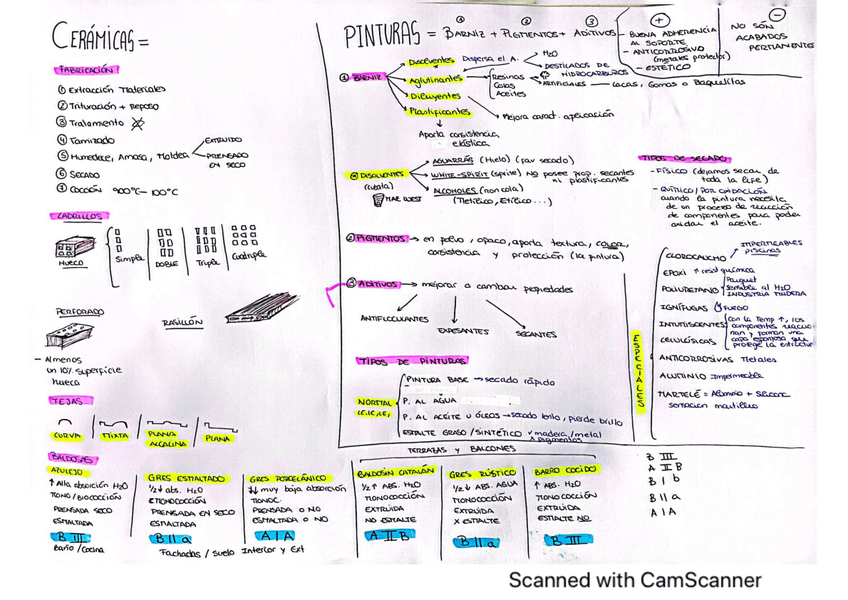 CERÁMICAS =
FABRICACIÓN:
① Extracción Materiales
② Trituración + Reposo
③ Tratamiento
④ Tamizado
⑤ Humedece, Amasa, Moldea
EXTRUIDO
PRENSADO EN SECO
⑥ SECADO
⑦ COCCIÓN 900°C - 100°C
LADRILLOS
HUECO
Simple
DOBLE
Triple
Cuádruple
PERFORADO
RASILLÓN
- Al menos
un 10% superficie
hueca
TEJAS
CURVA
MIXTA
PLANA
ALICALINA
PLANA
PINTURAS = BARNIZ + PIGMENTOS + ADITIVOS
① ② ③
+
- BUENA ADHERENCIA
AL SOPORTE
- ANTICORROSIVO
(metales protector)
- ESTÉTICO
-
NO SON
ACABADOS
PERMANENTES
① BARNIZ
Disolventes
Dispersa el A.
H2O
DESTILADOS DE
HIDROCARBUROS
Aglutinantes
Resinas
Colas
Aceites
ARTIFICIALES
LACAS, Gomas o Baquelitas
Diluyentes
Mejora caract. aplicación
Plastificantes
Aporta consistencia
elástica
DISOLVENTES
(cubata)
MAE WEST
AGUARRÁS (Hielo) (fav secado)
WHITE-SPIRIT (sprite) NO posee prop. secantes
ni plastificantes
ALCOHOLES (ron cola)
(Metílico, Etílico...)
② PIGMENTOS → en polvo, opaco, aporta textura, carga,
consistencia y protección (la pintura)
③ ADITIVOS → mejorar o cambiar propiedades
ANTIFLOCULANTES
ESPESANTES
SECANTES
TIPOS DE SECADO
- FÍSICO (dejamos secar de
toda la life)
- QUÍMICO/POR OXIDACIÓN
cuando la pintura necesita
de un proceso de reacción
de componentes para poder
oxidar el aceite.
TIPOS DE PINTURAS
NORMAL
PINTURA BASE → secado rápido
P. AL AGUA
P. AL ACEITE U ÓLEOS → secado lento, pierde brillo
ESMALTE GRASO/SINTÉTICO
madera/metal
x pigmentos
ESPECIALES
CLOROCAUCHO
IMPERMEABLES
piscinas
EPOXI ↑ resist química
POLIURETANO
Parquet
sensible al H2O
INDUSTRIA MADERA
IGNÍFUGAS
FUEGO
INTUMESCENTES
con la Temp ↑, los
componentes reaccio-
nan y forman una
capa esponjosa que
protege la estructura
CELULÓSICAS
ANTICORROSIVAS Metales
ALUMINIO Impermeable
MARTELÉ = Aluminio + Silicone
sensacion martilleo
BALDOSAS
AZULEJO
↑ Alta absorción H2O
MONO/BICOCCIÓN
PRENSADA SECO
ESMALTADA
B III
Baño/Cocina
GRES ESMALTADO
1/2 ↓ abs. H2O
MONOCOCCIÓN
PRENSADA EN SECO
ESMALTADA
B II a
GRES PORCELÁNICO
↓↓ muy baja absorción
MONOC.
PRENSADA O NO
ESMALTADA O NO
A I A
Fachadas / Suelo Interior y Ext
TERRAZAS Y BALCONES
BALDOSÍN CATALÁN
1/2 ↑ ABS. H2O
MONOCOCCIÓN
EXTRUÍDA
NO ESMALTE
A II B
GRES RÚSTICO
1/2 ↓ ABS. AGUA
MONOCOCCIÓN
EXTRUÍDA
X ESMALTE
B II a
BARRO COCIDO
↑ ABS. H2O
MONO COCCIÓN
EXTRUÍDA
ESMALTE NO
B III
B III
A II B
B I b
B II a
A I A
Scanned with CamScanner